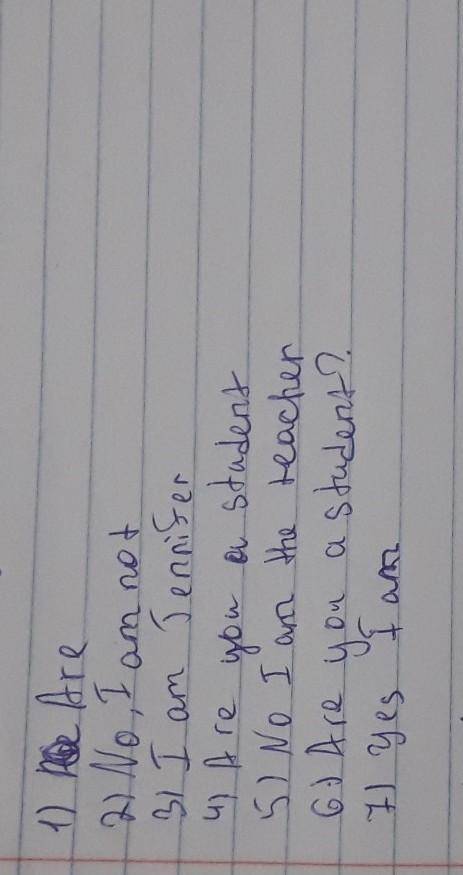 1) Are
2) No, I am not
3) I am Jennifer
4) Are you a student
5) No I am the teacher
6) Are you a student?
7) Yes I am